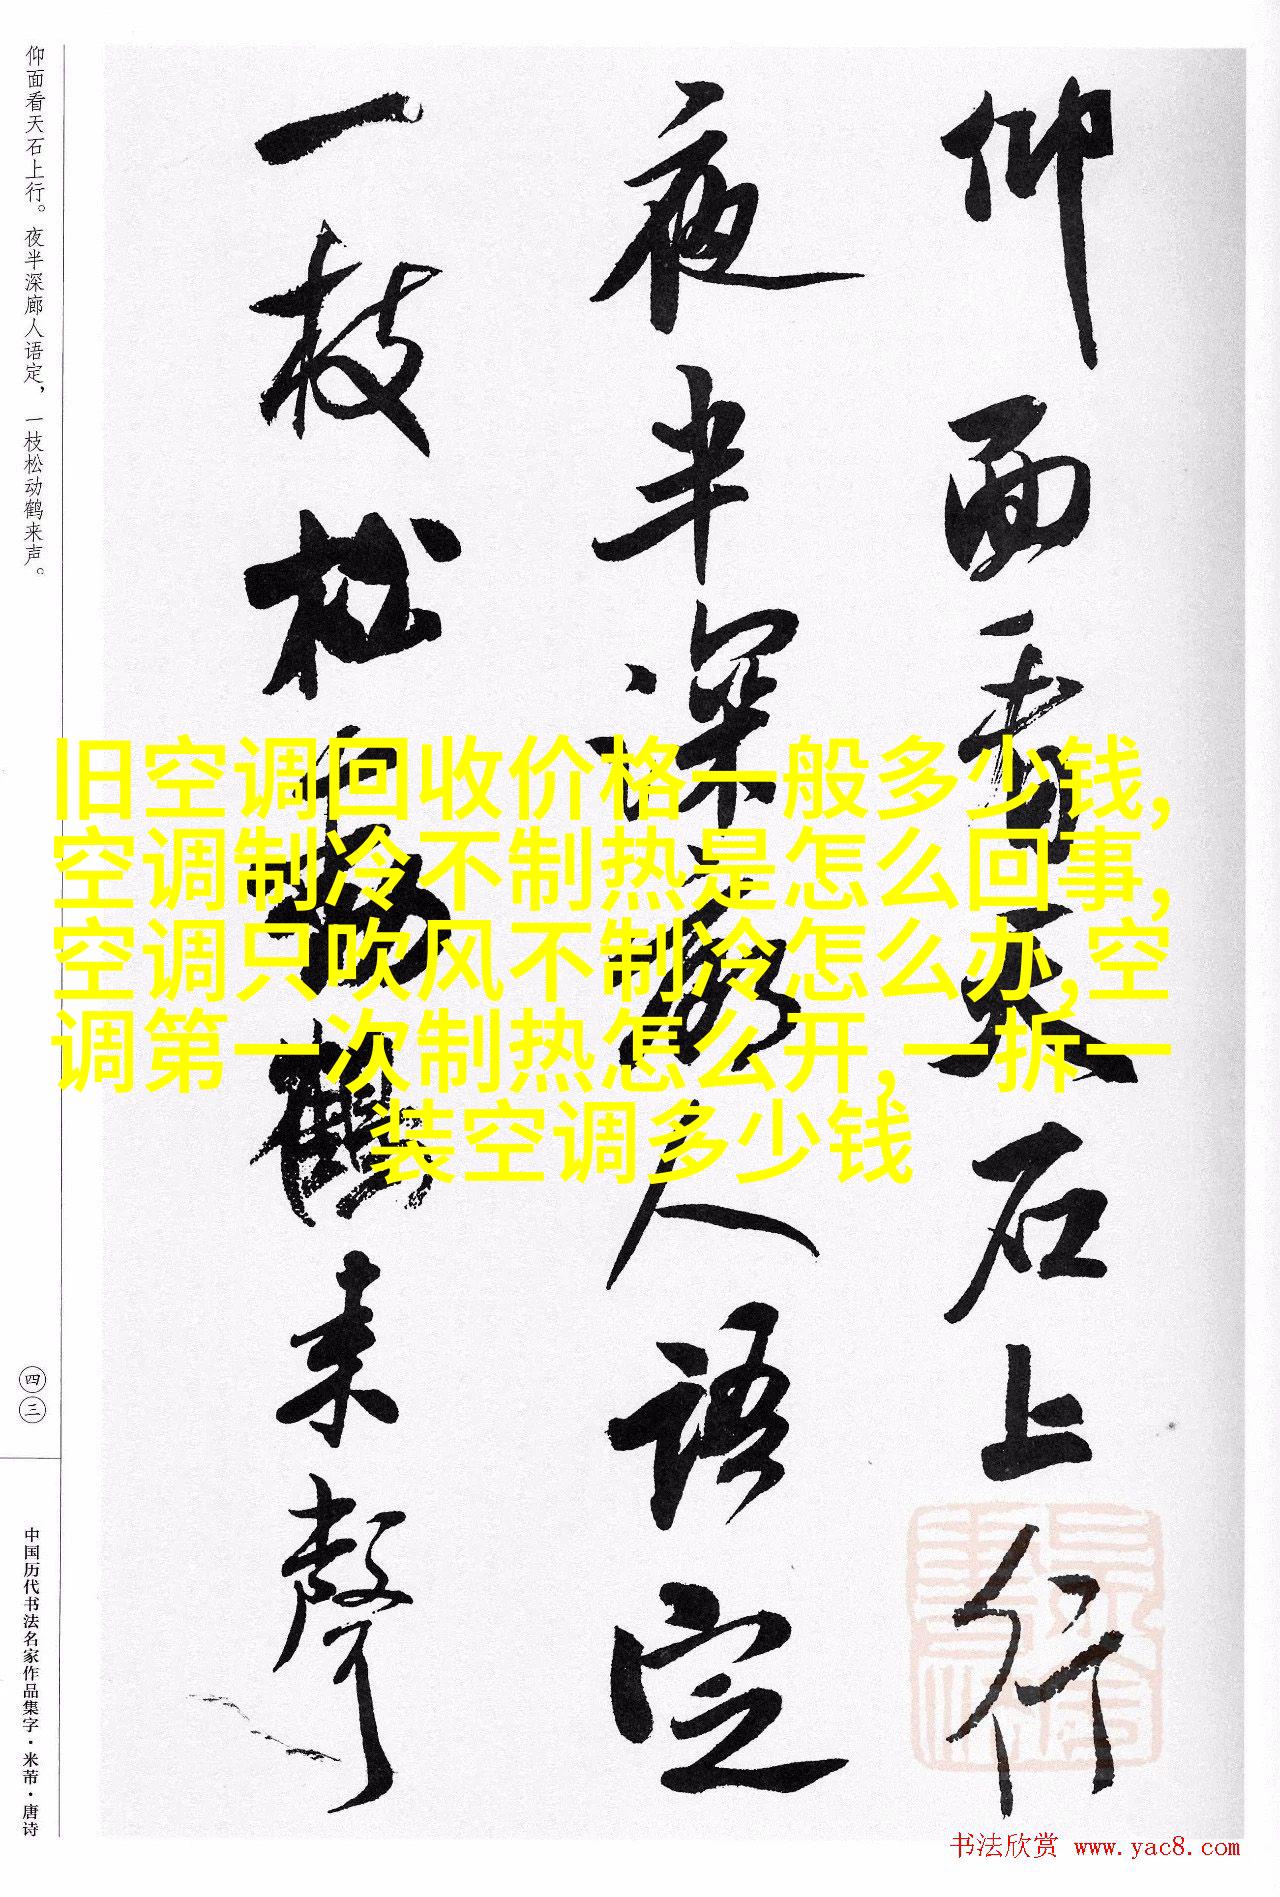 仰面看天石上行
夜半深廊人语定
一枝松动鹤来声
仰面看天石上行。夜半深廊人语定，一枝松动鹤来声。
四三
中国历代书法名家作品集字·米芾·唐诗
旧空调回收价格一般多少钱,
空调制冷不制热是怎么回事,
空调只吹风不制冷怎么办,空
调第一次制热怎么开,一拆一
装空调多少钱
书法欣赏 www.yac8.com